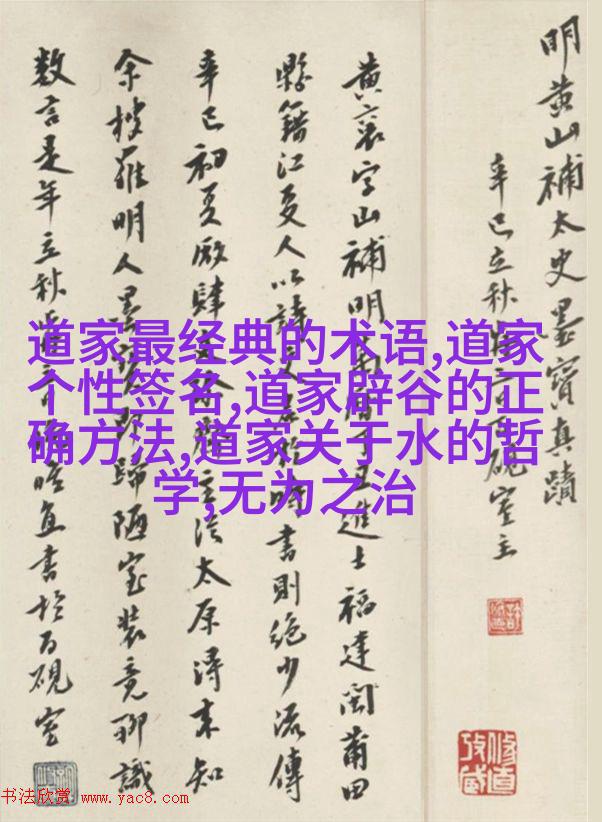 明黄山補太史墨寶真蹟
辛巳立秋硯室主
黄襄字山補明進士福建閩莆田
縣籍江夏人以詩時書則絶少流傳
辛巳初夏厰肆太原潯来知
余搜羅明人墨歸陋室装竟聊識
数言是年立秋書於百硯室
道家最经典的术语,道家
个性签名,道家辟谷的正
确方法,道家关于水的哲
学,无为之治
书法欣赏 www.yac8.com